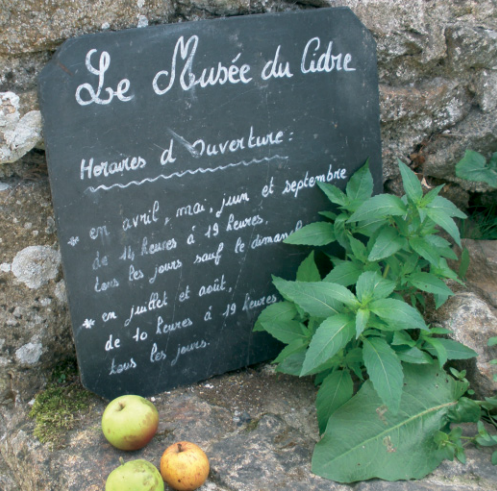 Le Musée du Cidre
Horaires d'Ouverture :
* en avril, mai, juin et septembre
de 14 heures à 19 heures,
tous les jours sauf le dimanche
* en juillet et août,
de 10 heures à 19 heures
tous les jours.